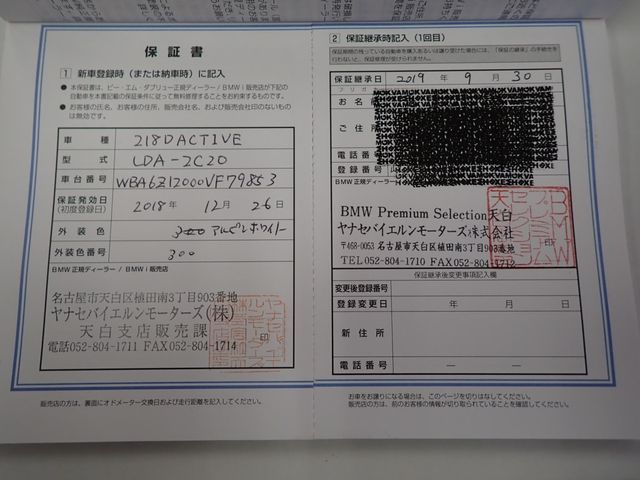 保証書
1 新車登録時（または納車時）に記入
● 本保証書は、ビー・エム・ダブリュー正規ディーラー / BMW i 販売店が下記の
自動車を本書記載の保証条件に従って無料修理することをお約束するものです。
● お客様の氏名、お客様の住所、販売会社名、および販売会社印のないもの
は無効です。
車種 218D ACTIVE
型式 LDA-2C20
車台番号 WBA6Z12000VF79853
保証発効日
(初度登録日) 2018 年 12 月 26 日
外装色 アルピンホワイト
外装色番号 300
BMW正規ディーラー / BMW i 販売店
名古屋市天白区植田南3丁目903番地
ヤナセバイエルンモーターズ(株)
天白支店販売課
電話052-804-1711 FAX052-804-1714
印
販売店の方は、裏面にオドメーター交換日および走行距離を記入してください。
2 保証継承時記入（1回目）
保証期間の残っている自動車を購入あるいは譲り受けた場合には、「保証の継承」の手続きを
行わないと、保証修理が受けられません。
保証継承日 2019 年 9 月 30 日
フリガナ
お名前
ご住所
電話番号
登録番号
BMW正規ディーラー
BMW Premium Selection天白
ヤナセバイエルンモーターズ株式会社
〒468-0053 名古屋市天白区植田南3丁目903番地
TEL052-804-1710 FAX052-804-1712
印
保証継承後変更事項記入欄
変更後登録番号
登録変更日 年 月 日
新住所
電話番号 — —
お車をお譲りになる場合は、このページを切りはなしてください。
販売店の方は、前のお客様の情報が切り取られていることを確認してください。